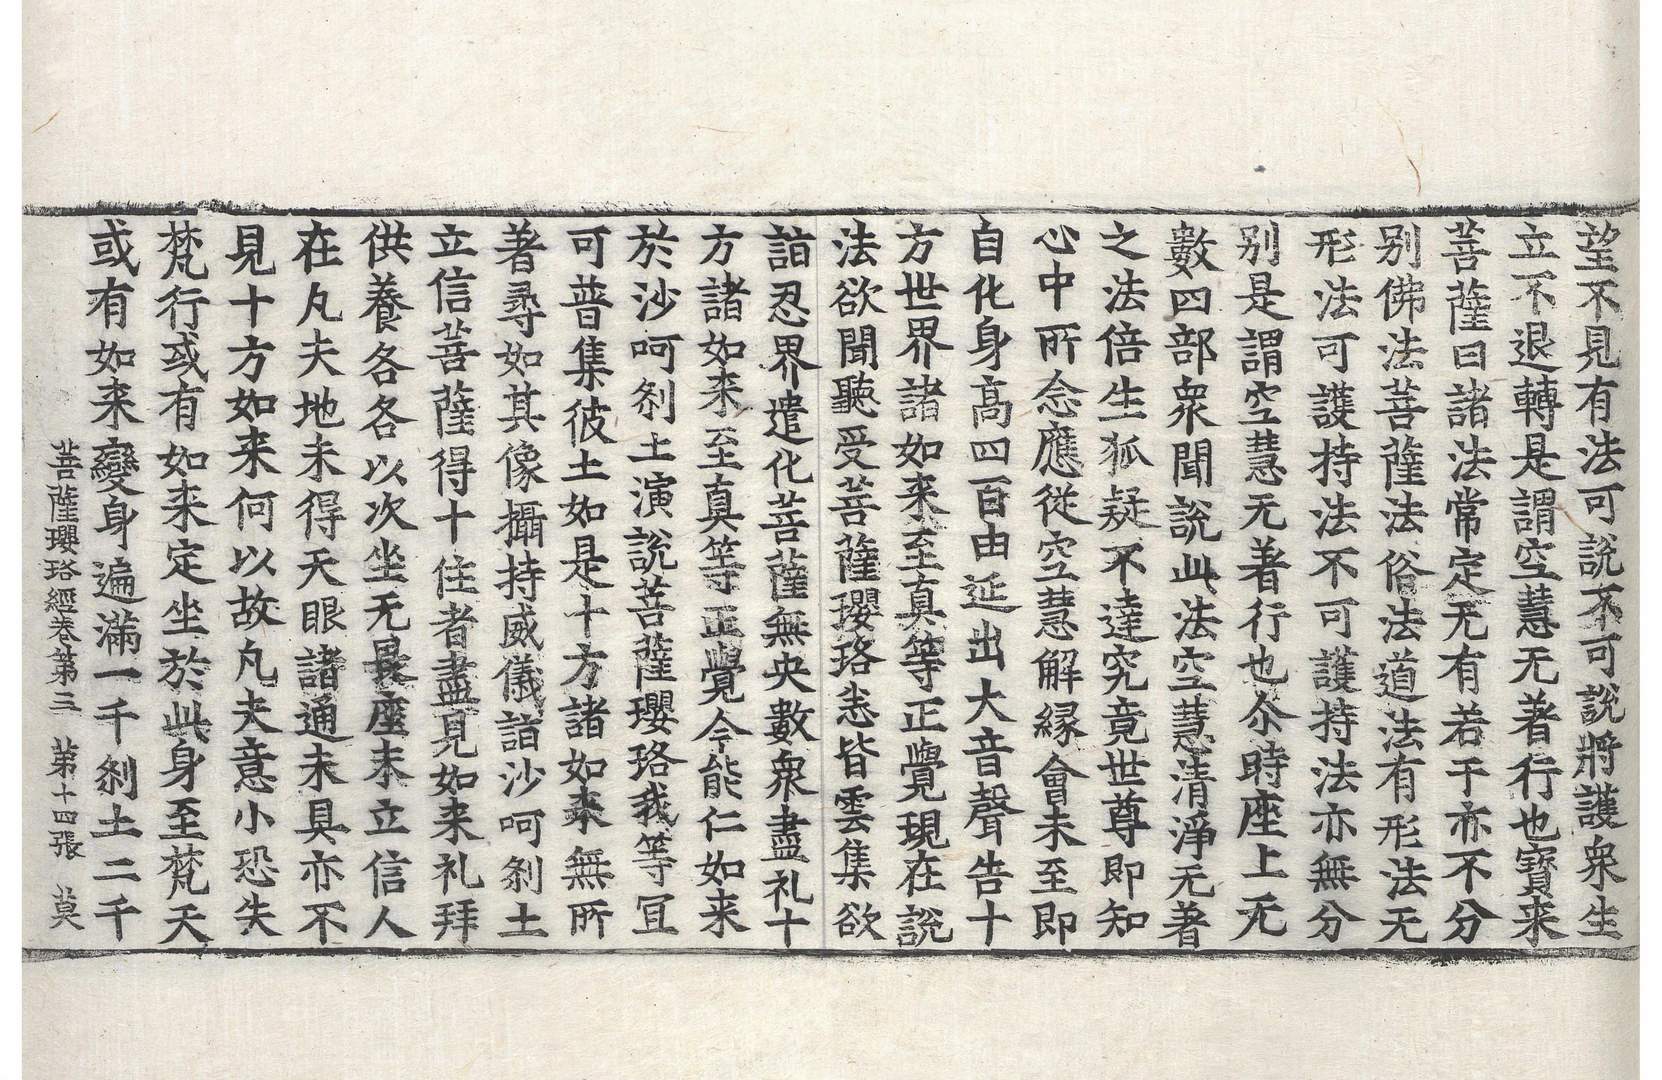 望不見有法可說不可說將護衆生
立不退轉是謂空慧无著行也寶来
菩薩曰諸法常定无有若干亦不分
别佛法菩薩法俗法道法有形法无
形法可護持法不可護持法亦無分
别是謂空慧无著行也尒時座上无
數四部衆聞說此法空慧清淨无著
之法倍生狐疑不達究竟世尊即知
心中所念應從空慧解縁會未至即
自化身高四百由延出大音聲告十
方世界諸如来至真等正覺現在說
法欲聞聽受菩薩瓔珞恙皆雲集欲
詣忍界遣化菩薩無央數衆盡礼十
方諸如来至真等正覺今能仁如来
於沙呵刹土演說菩薩瓔珞我等冝
可普集彼土如是十方諸如来無所
著尋如其像攝持威儀詣沙呵刹土
立信菩薩得十住者盡見如来礼拜
供養各各以次坐无畏座未立信人
在凡夫地未得天眼諸通未具亦不
見十方如来何以故凡夫意小恐失
梵行或有如来定坐於此身至梵天
或有如来變身遍滿一千刹土二千
菩薩瓔珞經卷第三　第十四張　莫